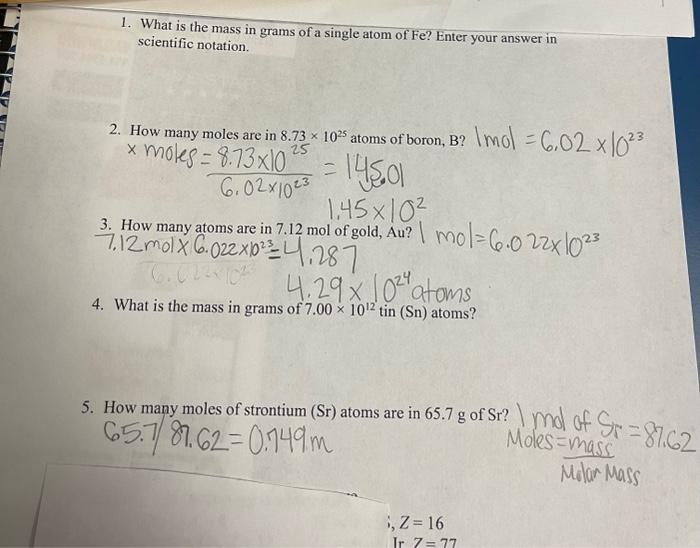 1. What is the mass in grams of a single atom of Fe? Enter your answer in
scientific notation.
2. How many moles are in 8.73 × 10²⁵ atoms of boron, B? 1 mol = 6.02 x 10²³
x moles = 8.73x10²⁵ / 6.02x10²³ = 145.01
1.45 x 10²
3. How many atoms are in 7.12 mol of gold, Au? 1 mol = 6.022x10²³
7.12 mol x 6.022x10²³ = 4.287
4.29 x 10²⁴ atoms
4. What is the mass in grams of 7.00 × 10¹² tin (Sn) atoms?
5. How many moles of strontium (Sr) atoms are in 65.7 g of Sr? 1 mol of Sr = 87.62
65.7/87.62 = 0.749 m
Moles = mass
Molar Mass
, Z = 16
Ir Z = 77